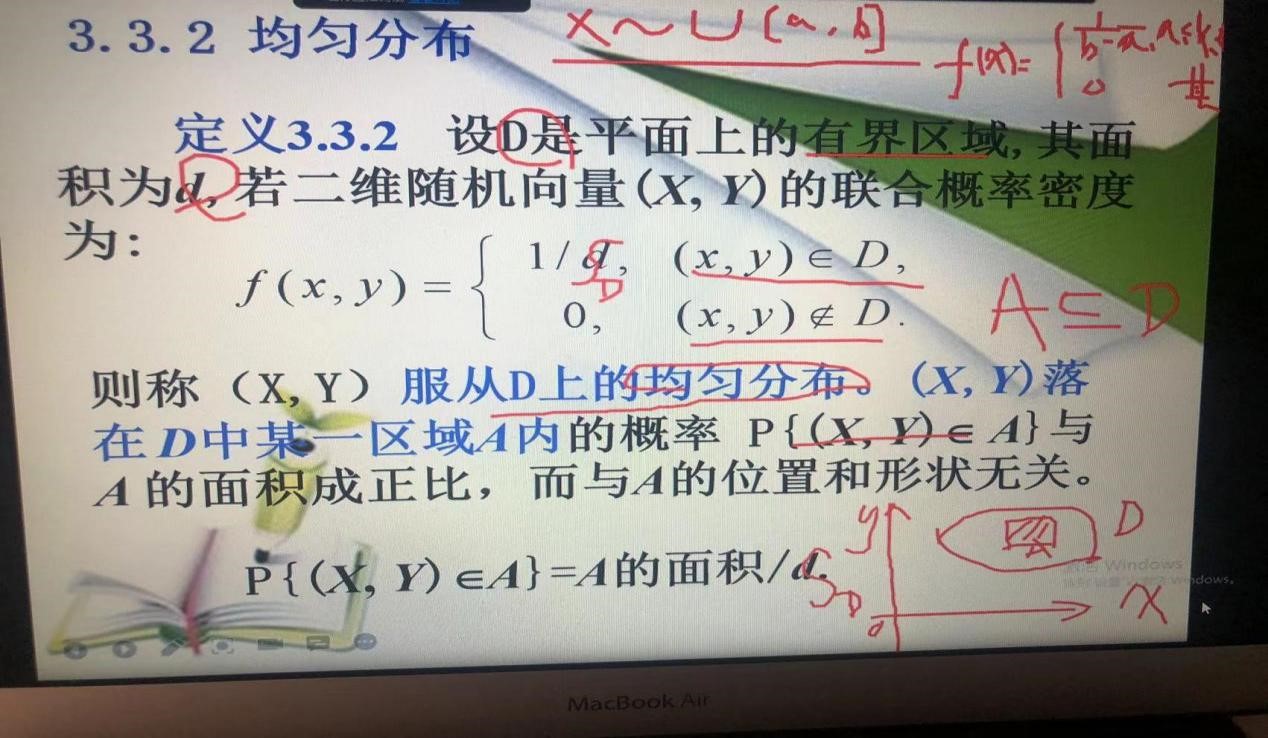 3.3.2 均匀分布 X～U[a,b]
f(x)= { 1/b-a, a≤x≤
0 其
定义3.3.2 设D是平面上的有界区域,其面
积为d,若二维随机向量(X, Y)的联合概率密度
为:
f(x,y) = { 1/d, (x,y)∈D,
S_D
0, (x,y)∉D.
A⊆D
则称（X, Y）服从D上的均匀分布。(X, Y)落
在D中某一区域A内的概率 P{(X, Y)∈A}与
A的面积成正比，而与A的位置和形状无关。
y D
A
P{(X, Y)∈A}=A的面积/d.
S_D
0 X
Windows
Windows。
MacBook Air